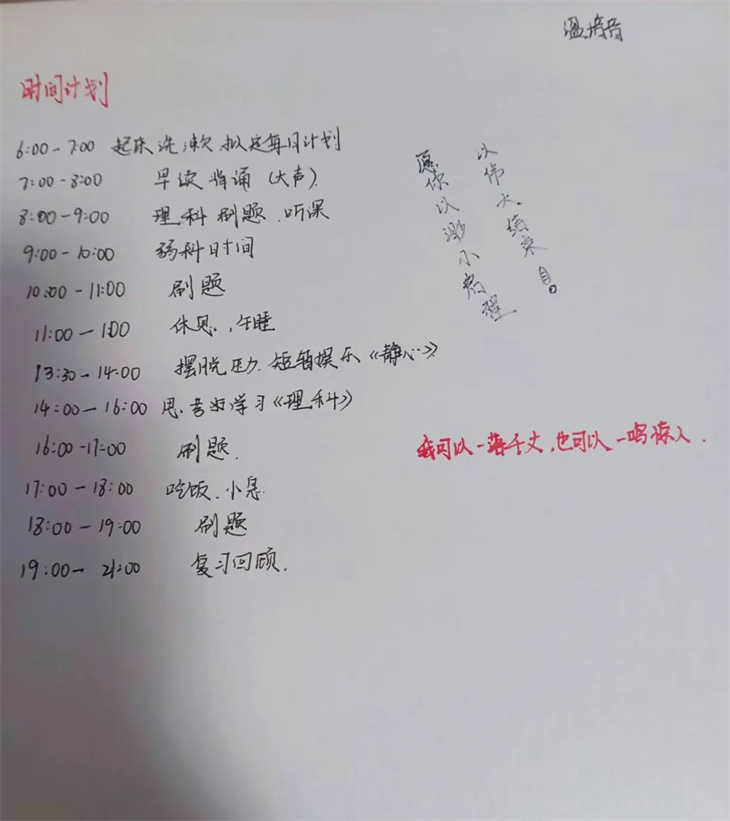 温培音
时间计划
6:00-7:00 起床洗漱 拟定每日计划
7:00-8:00 早读 背诵 (大声).
8:00-9:00 理科 刷题、听课
9:00-10:00 弱科时间
10:00-11:00 刷题
11:00-1:00 休息、午睡
13:30-14:00 摆脱压力、短暂娱乐《静心》
14:00-16:00 思考如学习《理科》
16:00-17:00 刷题.
17:00-18:00 吃饭、小息
18:00-19:00 刷题
19:00-21:00 复习回顾.
愿你以渺小启程
以伟大结束自。
我可以一落千丈,也可以一鸣惊人.